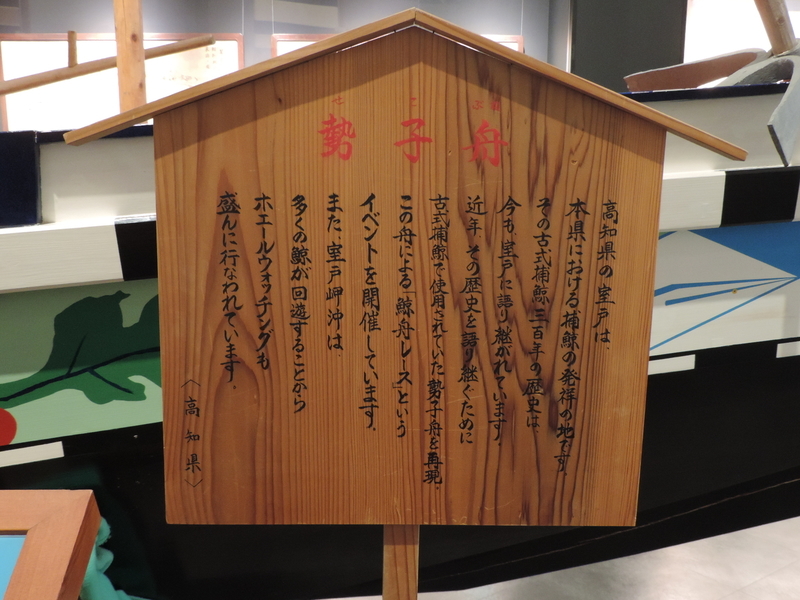 勢子舟
せこぶね
高知県の室戸は、
本県における捕鯨の発祥の地です。
その古式捕鯨三百年の歴史は、
今も室戸に語り継がれています。
近年、その歴史を語り継ぐために
古式捕鯨で使用されていた勢子舟を再現。
この舟による「鯨舟レース」という
イベントを開催しています。
また、室戸岬沖は、
多くの鯨が回遊することから
ホエールウォッチングも
盛んに行なわれています。
〈高知県〉